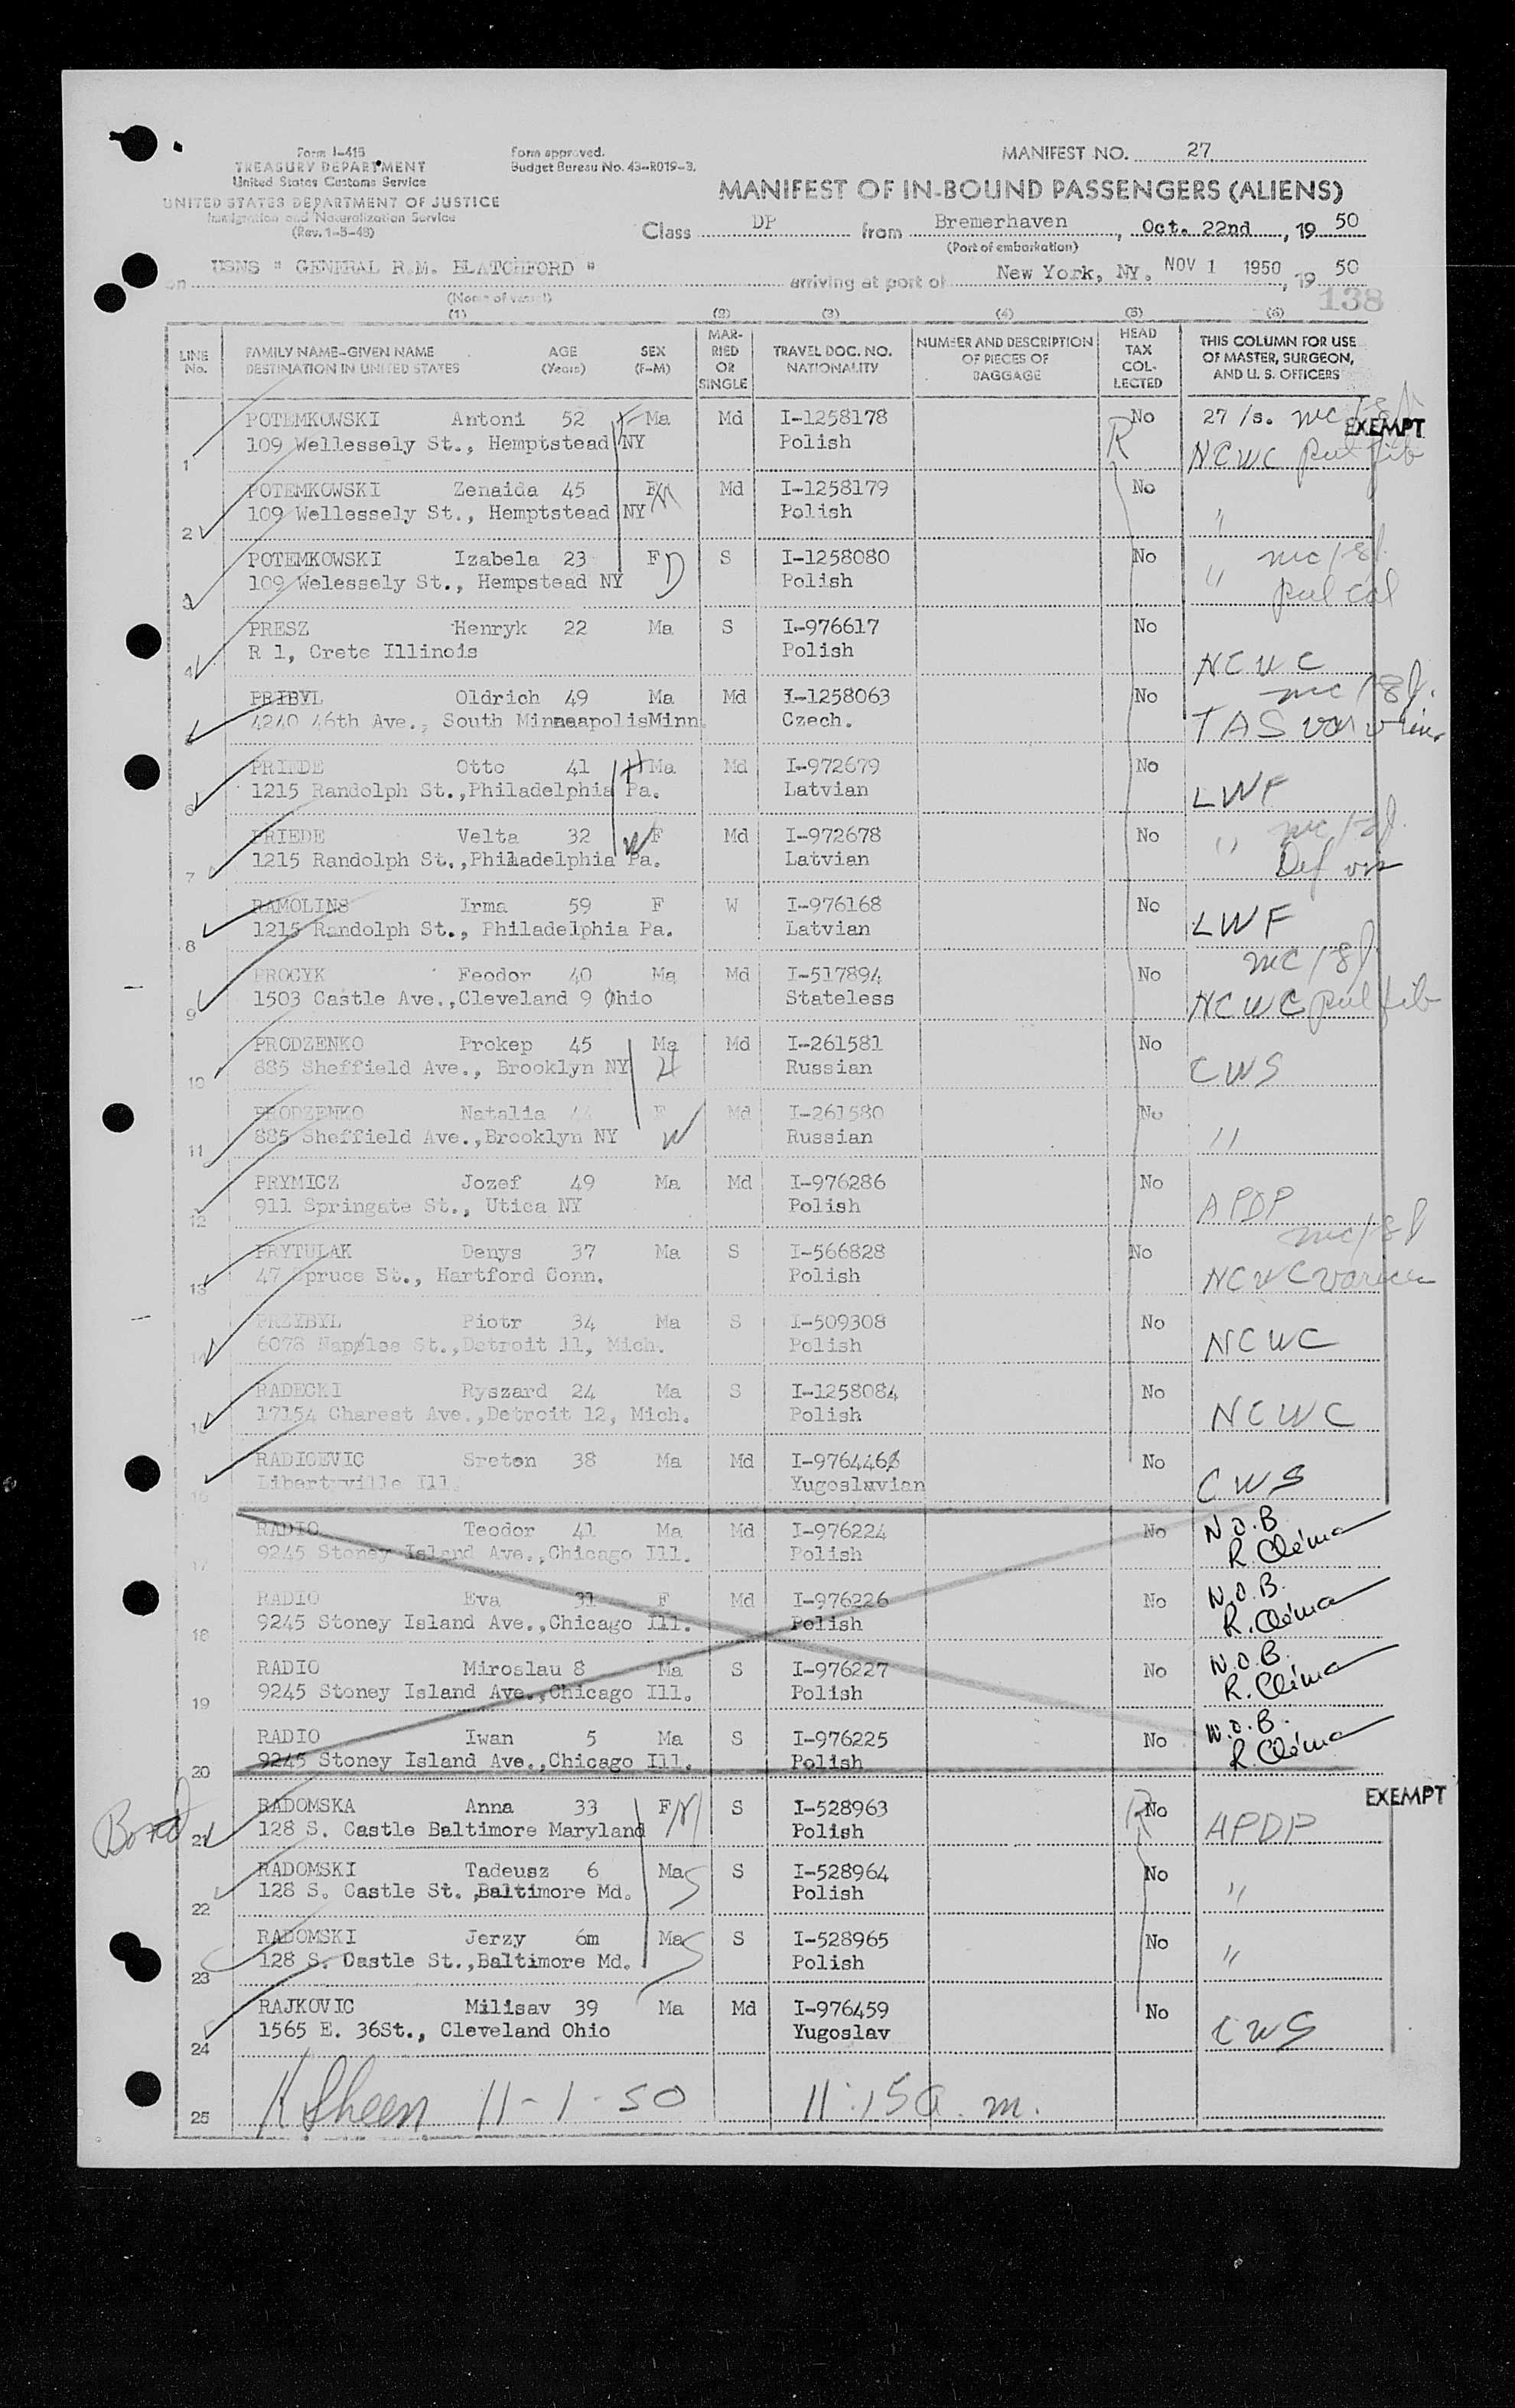 Form I-415
TREASURY DEPARTMENT
United States Customs Service
UNITED STATES DEPARTMENT OF JUSTICE
Immigration and Naturalization Service
(Rev. 1-5-48)
Form approved.
Budget Bureau No. 43-R019-3.
MANIFEST NO. 27
MANIFEST OF IN-BOUND PASSENGERS (ALIENS)
Class DP from Bremerhaven, Oct. 22nd, 19 50
(Port of embarkation)
on USNS " GENERAL R.M. BLATCHFORD " arriving at port of New York, NY. NOV 1 1950, 19 50
(Name of vessel)
138
(1) (2) (3) (4) (5) (6)
LINE No. FAMILY NAME-GIVEN NAME DESTINATION IN UNITED STATES AGE (Years) SEX (F-M) MARRIED OR SINGLE TRAVEL DOC. NO. NATIONALITY NUMBER AND DESCRIPTION OF PIECES OF BAGGAGE HEAD TAX COLLECTED THIS COLUMN FOR USE OF MASTER, SURGEON, AND U. S. OFFICERS
POTEMKOWSKI Antoni 52 Ma Md I-1258178 No 27 /s. mc/8f EXEMPT
1 109 Wellessely St., Hemptstead NY Polish R NCWC pul fib
POTEMKOWSKI Zenaida 45 F Md I-1258179 No
2 109 Wellessely St., Hemptstead NY Polish "
POTEMKOWSKI Izabela 23 F D S I-1258080 No mc/8f.
3 109 Welessely St., Hempstead NY Polish " pul cal
PRESZ Henryk 22 Ma S I-976617 No
4 R 1, Crete Illinois Polish NCWC
PRIBYL Oldrich 49 Ma Md I-1258063 No mc/8f.
5 4240 46th Ave., South MinneapolisMinn. Czech. TAS var vein
PRIEDE Otto 41 H Ma Md I-972679 No
6 1215 Randolph St.,Philadelphia Pa. Latvian LWF
PRIEDE Velta 32 W F Md I-972678 No " mc/8f.
7 1215 Randolph St.,Philadelphia Pa. Latvian Def vis
RAMOLINS Irma 59 F W I-976168 No
8 1215 Randolph St., Philadelphia Pa. Latvian LWF
PROCYK Feodor 40 Ma Md I-517894 No mc/8f
9 1503 Castle Ave.,Cleveland 9 Ohio Stateless NCWC pul fib
PRODZENKO Prokep 45 Ma Md I-261581 No
10 885 Sheffield Ave., Brooklyn NY H Russian CWS
PRODZENKO Natalia F Md I-261580 No
11 885 Sheffield Ave.,Brooklyn NY W Russian "
PRYMICZ Jozef 49 Ma Md I-976286 No
12 911 Springate St., Utica NY Polish APDP
PRYTULAK Denys 37 Ma S I-566828 No mc/8f
13 47 Spruce St., Hartford Conn. Polish NCWC
PRZYBYL Piotr 34 Ma S I-509308 No
14 6078 Naples St.,Detroit 11, Mich. Polish NCWC
RADECKI Ryszard 24 Ma S I-1258084 No
15 17154 Charest Ave.,Detroit 12, Mich. Polish NCWC
RADICEVIC Sreten 38 Ma Md I-976446 No
16 Libertyville Ill. Yugoslavian CWS
RADIO Teodor 41 Ma Md I-976224 No N.O.B
17 9245 Stoney Island Ave.,Chicago Ill. Polish R. Cléma
RADIO Eva 31 F Md I-976226 No N.O.B.
18 9245 Stoney Island Ave.,Chicago Ill. Polish R. Cléma
RADIO Miroslau 8 Ma S I-976227 No N.O.B.
19 9245 Stoney Island Ave.,Chicago Ill. Polish R. Cléma
RADIO Iwan 5 Ma S I-976225 No N.O.B.
20 9245 Stoney Island Ave.,Chicago Ill. Polish R. Cléma
RADOMSKA Anna 33 F M S I-528963 R No EXEMPT
Bond 21 128 S. Castle Baltimore Maryland Polish APDP
RADOMSKI Tadeusz 6 Ma S S I-528964 No
22 128 S. Castle St. ,Baltimore Md. Polish "
RADOMSKI Jerzy 6m Ma S S I-528965 No
23 128 S. Castle St.,Baltimore Md. Polish "
RAJKOVIC Milisav 39 Ma Md I-976459 No
24 1565 E. 36St., Cleveland Ohio Yugoslav CWS
25 K Sheen 11-1-50 11:15 a.m.